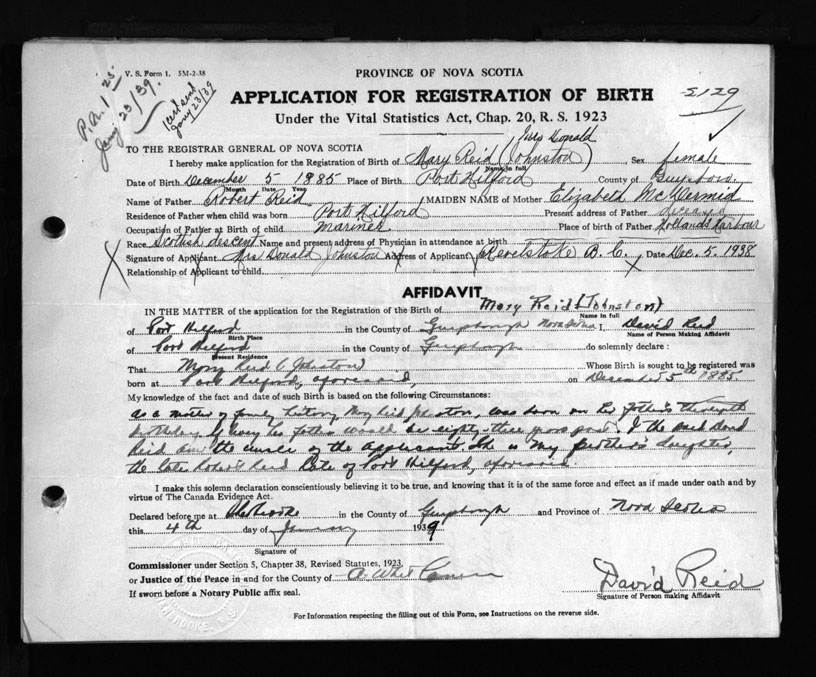 V. S. Form 1. 5M-2-38
P.A. 1 25
Jany 23/39.
Jany 23/39
PROVINCE OF NOVA SCOTIA
5129
APPLICATION FOR REGISTRATION OF BIRTH
Under the Vital Statistics Act, Chap. 20, R. S. 1923
Mrs Donald
TO THE REGISTRAR GENERAL OF NOVA SCOTIA
I hereby make application for the Registration of Birth of Mary Reid (Johnston) Sex female
Name in full
Date of Birth December 5 1885 Place of Birth Port Hilford County of Guysboro.
Month Date Year
Name of Father Robert Reid MAIDEN NAME of Mother Elizabeth McDermid
Residence of Father when child was born Port Hilford Present address of Father
Occupation of Father at Birth of child Mariner Place of birth of Father Hollands Harbour
Race Scottish descent Name and present address of Physician in attendance at birth
Signature of Applicant Mrs Donald Johnston Address of Applicant Revelstoke B. C. Date Dec. 5. 1938
Relationship of Applicant to child
AFFIDAVIT
IN THE MATTER of the application for the Registration of the Birth of Mary Reid (Johnston)
Name in full
of Port Hilford in the County of Guysborough Nova Scotia I, David Reid
Birth Place Name of Person Making Affidavit
of Port Hilford in the County of Guysborough do solemnly declare :
Present Residence
That Mary Reid (Johnston) Whose Birth is sought to be registered was
born at Port Hilford, aforesaid, on December 5th 1885
My knowledge of the fact and date of such Birth is based on the following Circumstances:
as a matter of family history Mary Reid Johnston, was born on her father's
birthday. If living her father would be eighty-three years past. I the said David
Reid am the uncle of the applicant she is my brother's daughter,
the late Robert Reid late of Port Hilford, aforesaid.
I make this solemn declaration conscientiously believing it to be true, and knowing that it is of the same force and effect as if made under oath and by
virtue of The Canada Evidence Act.
Declared before me at Sherbrooke in the County of Guysborough and Province of Nova Scotia
this 4th day of January 1939
Signature of
Commissioner under Section 5, Chapter 38, Revised Statutes, 1923,
or Justice of the Peace in and for the County of
If sworn before a Notary Public affix seal.
David Reid
Signature of Person making Affidavit
For Information respecting the filling out of this Form, see Instructions on the reverse side.